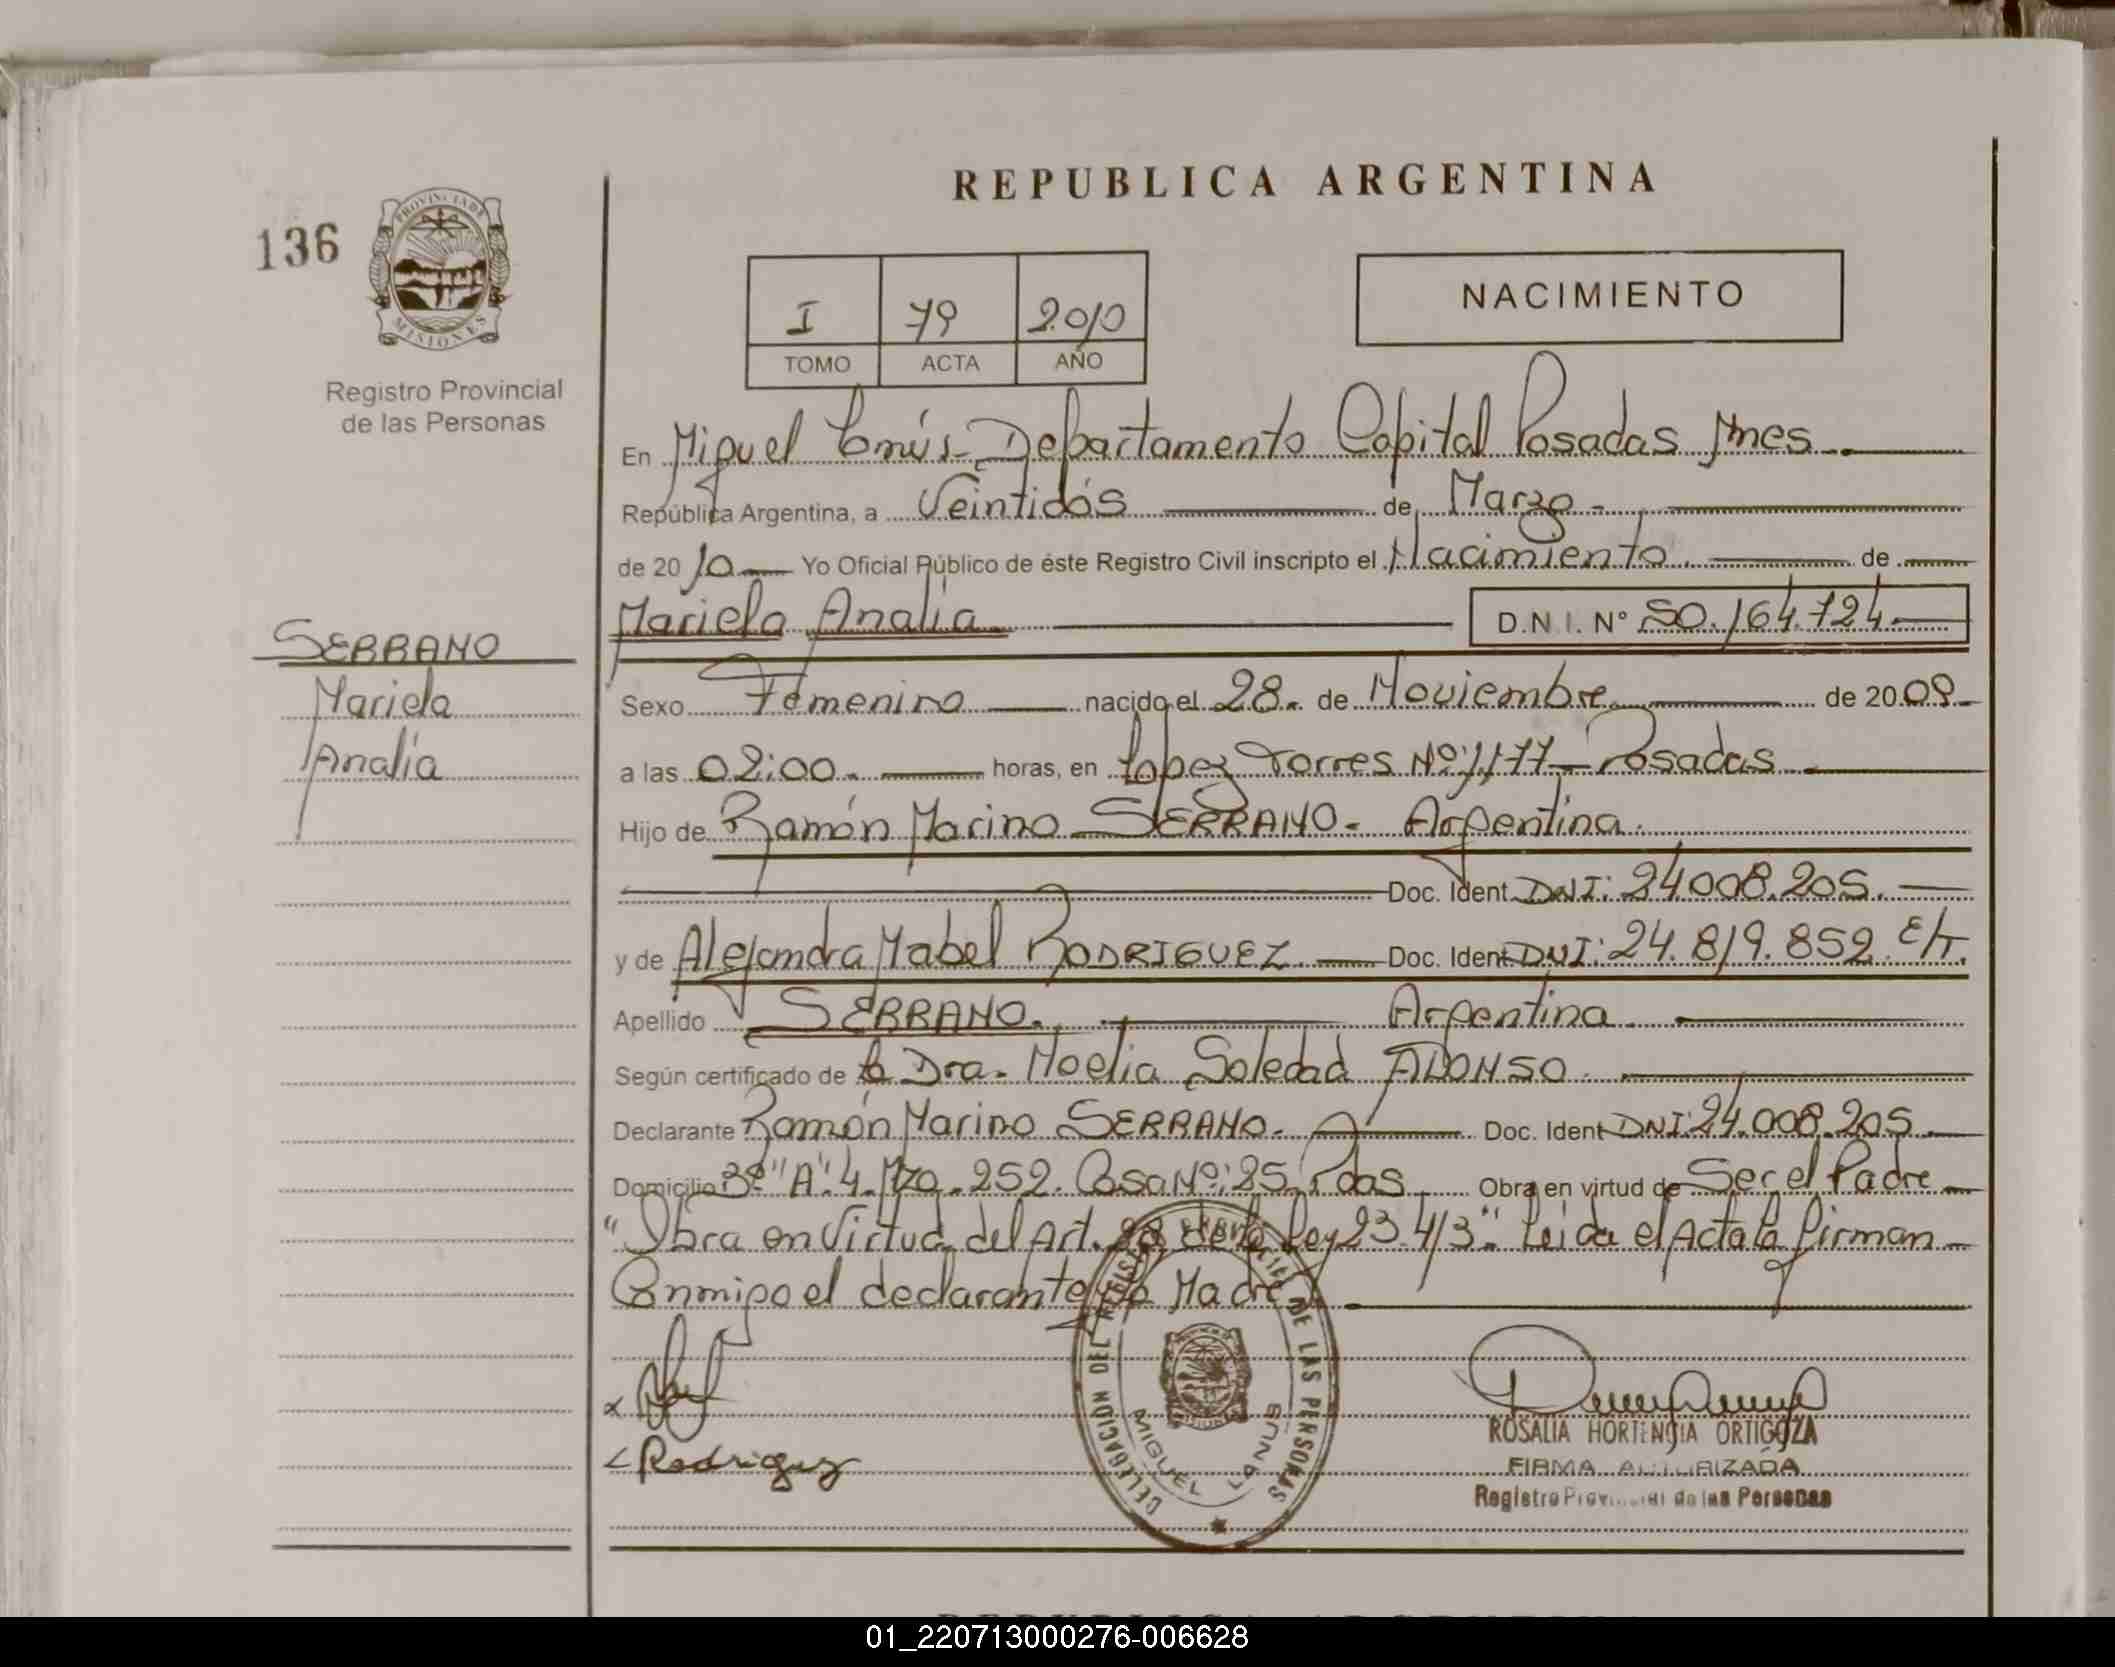 REPUBLICA ARGENTINA
136
PROVINCIA DE
MISIONES
Registro Provincial
de las Personas
I 79 2010
TOMO ACTA AÑO
NACIMIENTO
En Miguel Lanús - Departamento Capital Posadas Mnes.
República Argentina, a Veintidós de Marzo -
de 2010 Yo Oficial Público de éste Registro Civil inscripto el Nacimiento de
Mariela Analía D.N.I. Nº 50.164.724
SERRANO
Mariela
Analía
Sexo Femenino nacido el 28 de Noviembre de 2009
a las 02:00 horas, en Lopez Torres Nº: 1177 - Posadas
Hijo de Ramón Marino SERRANO - Argentina
Doc. Ident DNI: 24.008.205.
y de Alejandra Mabel RODRIGUEZ Doc. Ident DNI: 24.819.852 E/T.
Apellido SERRANO. Argentina
Según certificado de la Dra. Noelia Soledad ALONSO
Declarante Ramón Marino SERRANO - Doc. Ident DNI: 24.008.205
Domicilio "A" 4 Mza. 252. Casa Nº: 25 Pdas Obra en virtud de Ser el Padre
"Obra en Virtud del Art. de la Ley 23.413" Leida el Acta la firman
Conmigo el declarante Madre
Rodriguez
DELEGACION DEL REGISTRO PROVINCIAL DE LAS PERSONAS
MIGUEL LANUS
ROSALIA HORTENCIA ORTIGOZA
FIRMA AUTORIZADA
Registro Provincial de las Personas
01_220713000276-006628